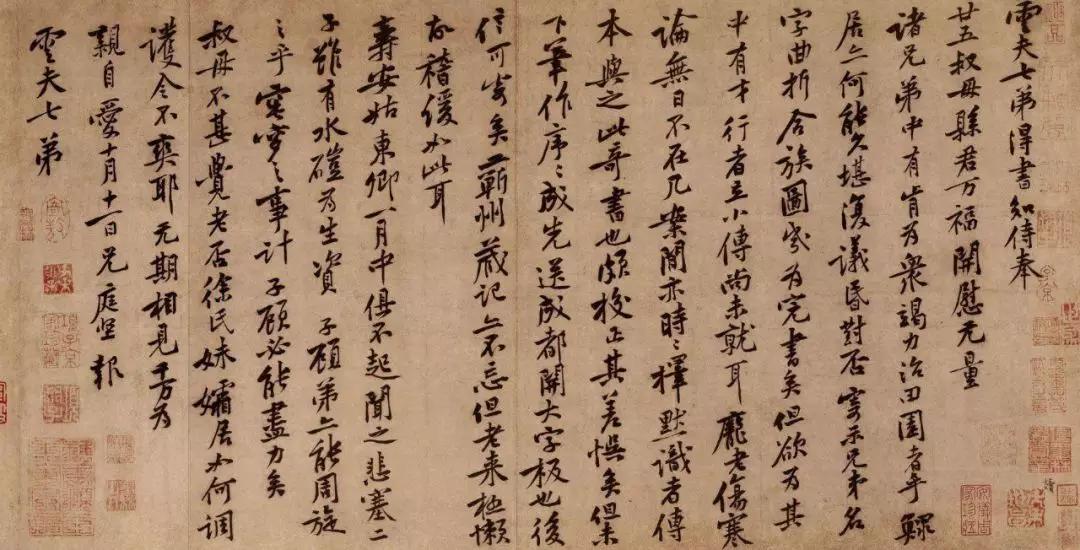 雲夫七弟得書知侍奉
廿五叔母縣君万福開慰无量
諸兄弟中有肯為衆竭力治田園者乎鰥
居亦何能久堪復議昏對否寄示兄弟名
字曲折合族圖幾為完書矣但欲為其
中有才行者立小傳尚未就耳龐老傷寒
論無日不在几案間亦時〻擇默識者傳
本與之此奇書也頗校正其差悮矣但未
下筆作序〻成先送成都開大字板也後
信可寄矣蘄州藏記亦不忘但老來極懶
故稽緩如此耳
壽安姑東卿一月中俱不起聞之悲塞二
子雖有水磑為生資子顧弟亦能周旋
之乎窀穸之事計子顧必能盡力矣
叔母不甚覺老否徐氏妹孀居如何調
護令不爽耶无期相見千万為
親自愛十月十一日兄庭堅報
雲夫七弟